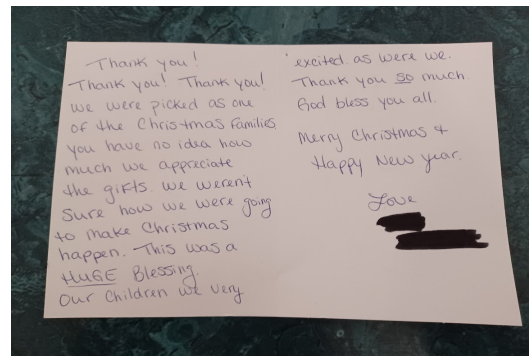 Thank you!
Thank you! Thank you!
We were picked as one
of the Christmas Families
you have no idea how
much we appreciate
the gifts. We weren't
sure how we were going
to make Christmas
happen. This was a
HUGE Blessing.
Our Children we very
excited. as were we.
Thank you so much.
God bless you all.
Merry Christmas &
Happy New Year.
Love